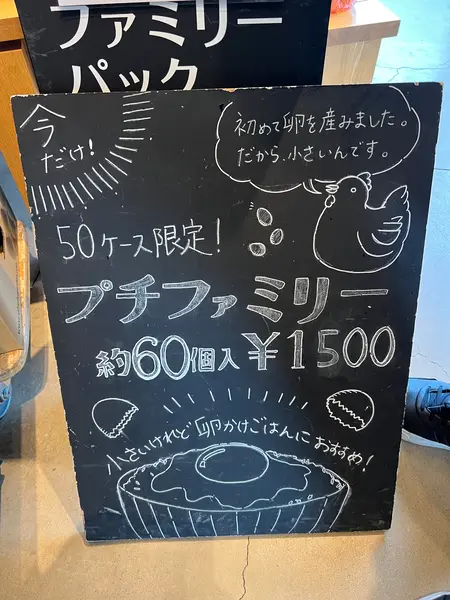 ファミリー
パック
今
だけ!
初めて卵を産みました。
だから、小さいんです。
50ケース限定!
プチファミリー
約60個入 ¥1500
小さいけれど卵かけごはんにおすすめ!